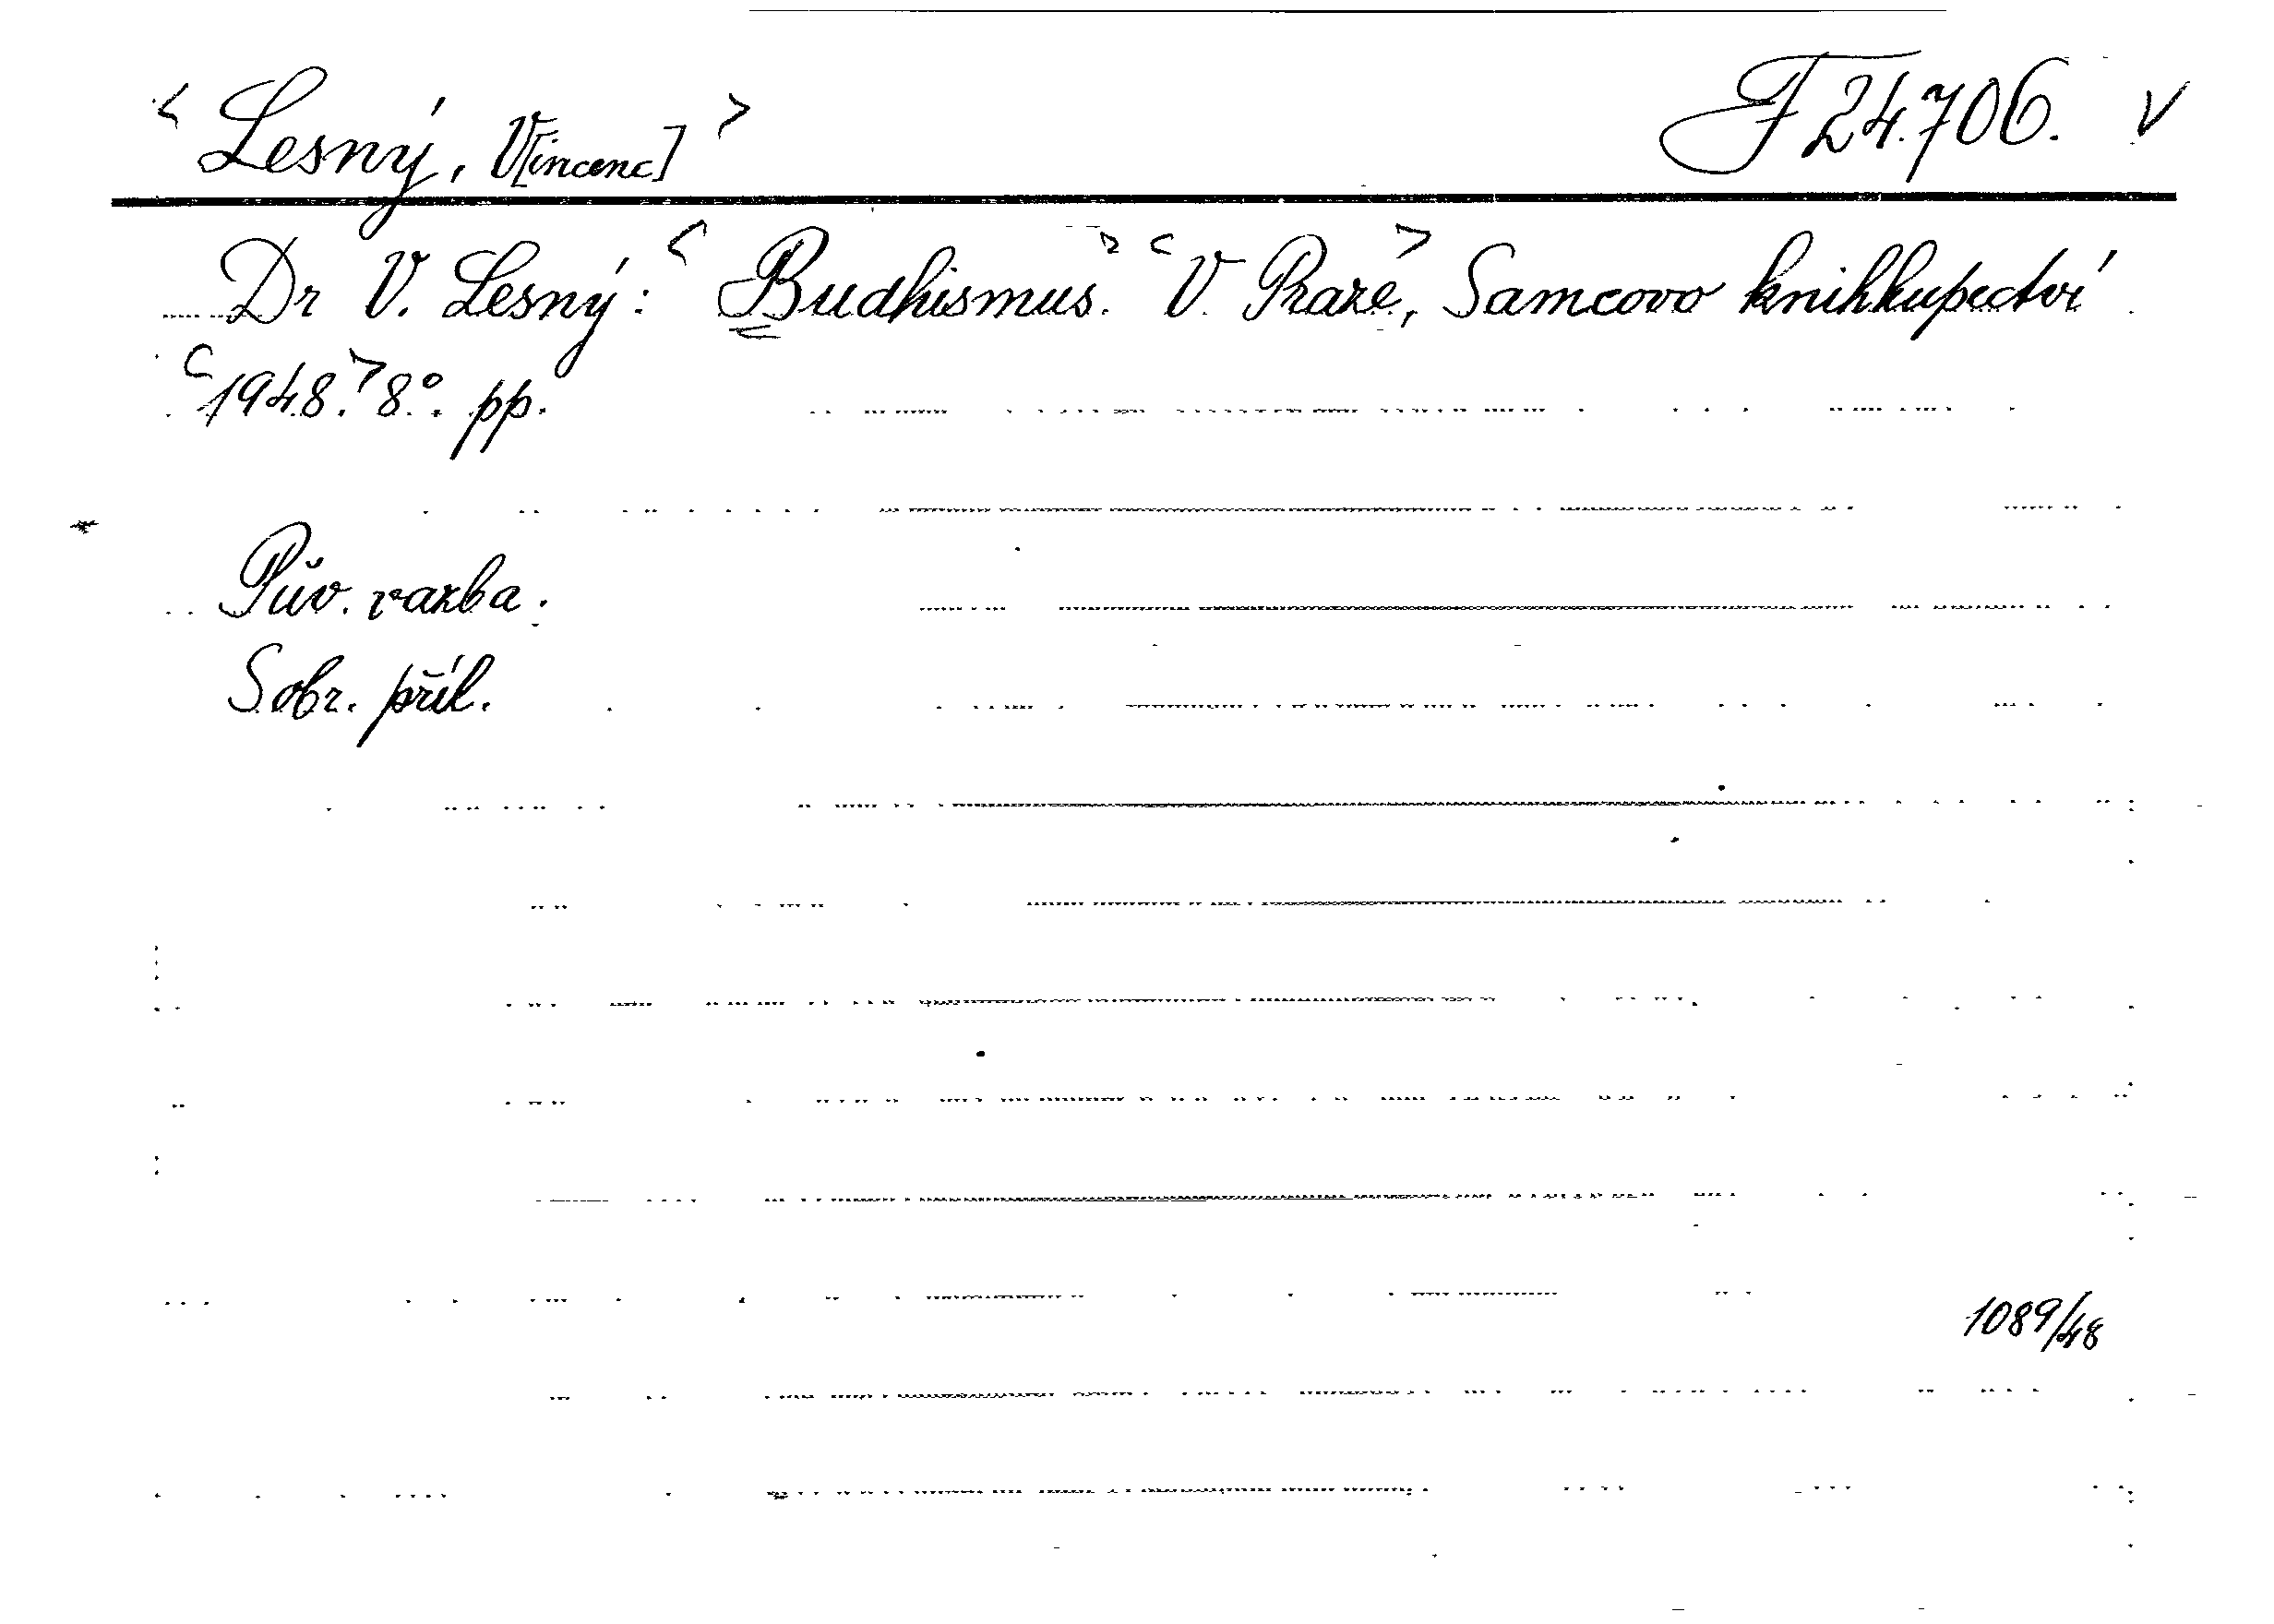 < Lesný, V[incenc] > F 24.706. V
Dr V. Lesný: < Budhismus. > < V Praze, > Samcovo knihkupectví
< 1948. > 8°. pp.
Pův. vazba.
S obr. příl.
1089/48